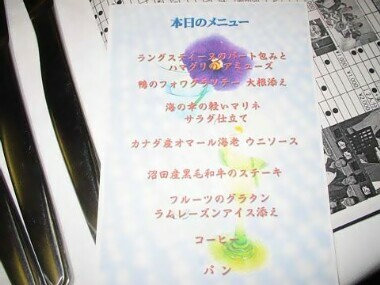 本日のメニュー
ラングスティーヌのパート包みと
ハマグリのアミューズ
鴨のフォワグラソテー 大根添え
海の幸の軽いマリネ
サラダ仕立て
カナダ産オマール海老 ウニソース
沼田産黒毛和牛のステーキ
フルーツのグラタン
ラムレーズンアイス添え
コーヒー
パン